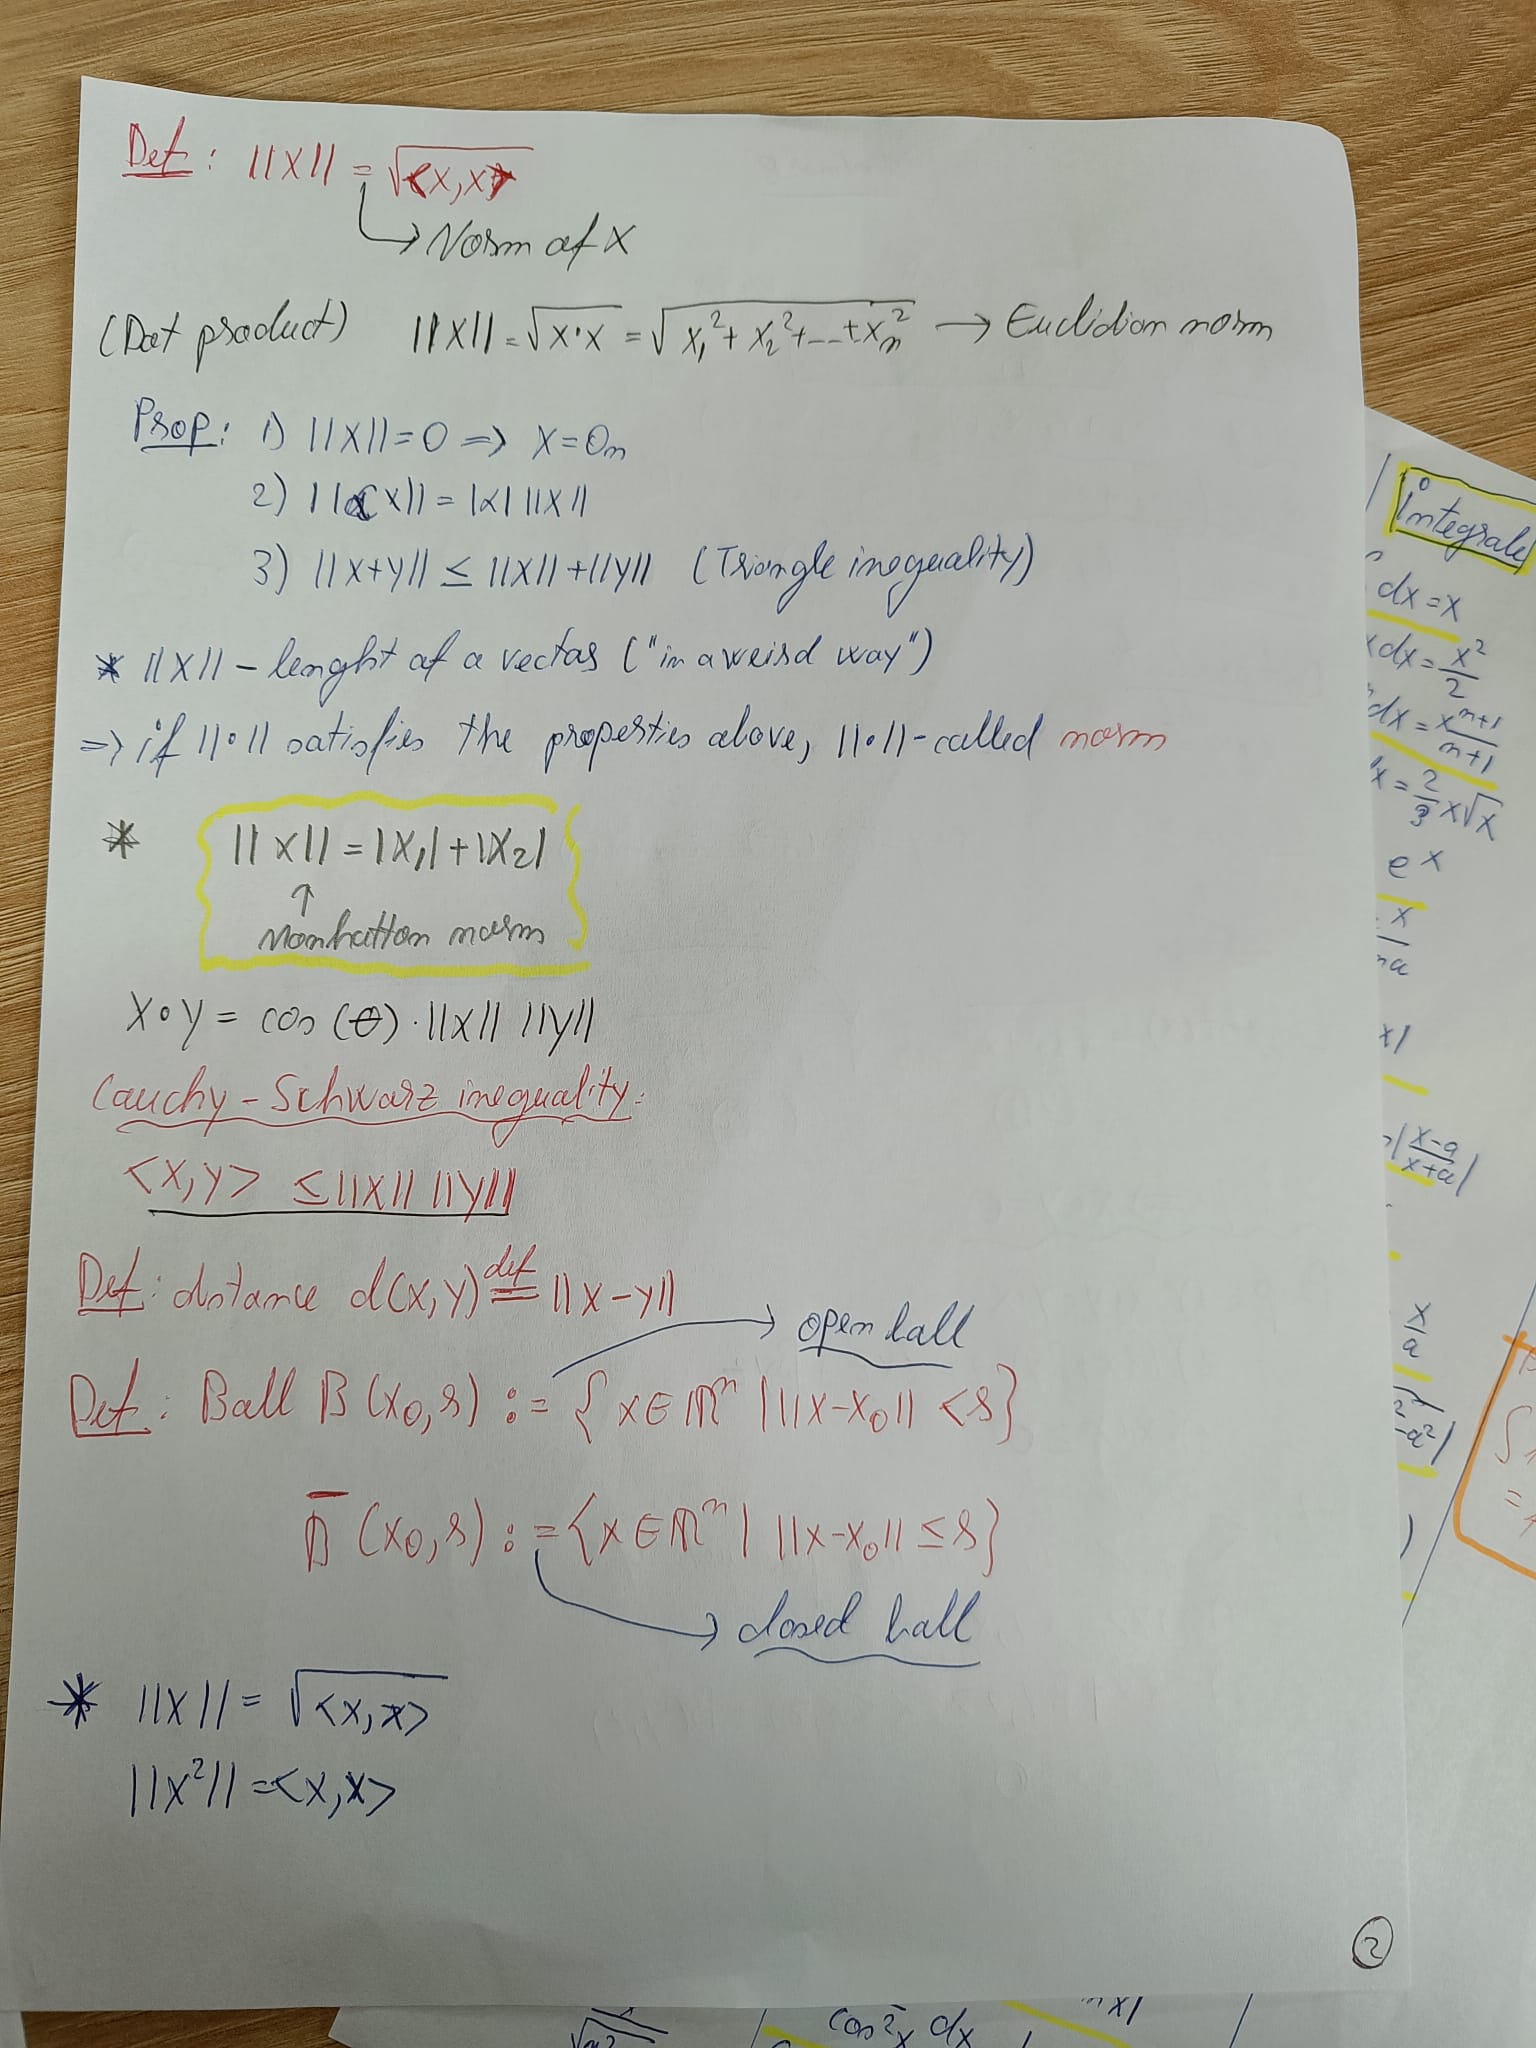 Def: ||x|| = √<x,x>
→ Norm of x
(Dot product) ||x|| = √x·x = √x₁² + x₂² + ... + xₙ² → Euclidian norm
Prop: 1) ||x|| = 0 => x = 0ₙ
2) ||αx|| = |α| ||x||
3) ||x+y|| ≤ ||x|| + ||y|| (Triangle inequality)
* ||x|| - lenght of a vector ("in a weird way")
=> if ||•|| satisfies the properties above, ||•|| - called norm
* ||x|| = |x₁| + |x₂|
↑
Manhattan norm
x∘y = cos(θ)·||x|| ||y||
Cauchy-Schwarz inequality:
<x,y> ≤ ||x|| ||y||
Def: distance d(x,y) def= ||x-y||
→ open ball
Def: Ball B(x₀,r) := {x∈ℝⁿ | ||x-x₀|| < r}
B̅(x₀,r) := {x∈ℝⁿ | ||x-x₀|| ≤ r}
→ closed ball
* ||x|| = √<x,x>
||x²|| = <x,x>
2
Integrale
dx = x
x dx = x²/2
dx = xⁿ⁺¹/n+1
x = 2/3 x√x
eˣ
x
x|
|x-a/x+a|
x/a
cos²x dx